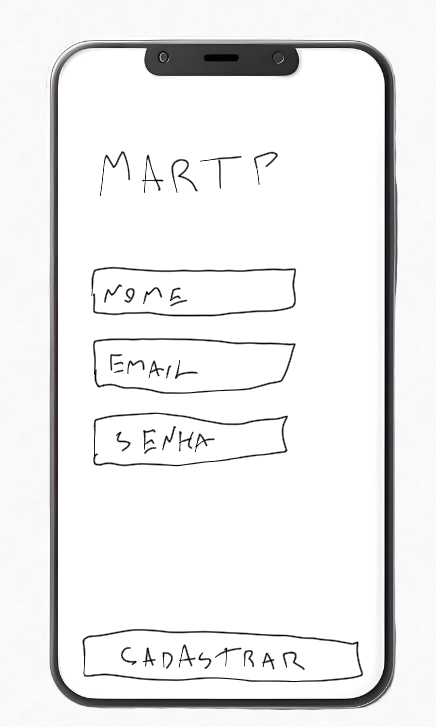 MARTP
NOME
EMAIL
SENHA
CADASTRAR